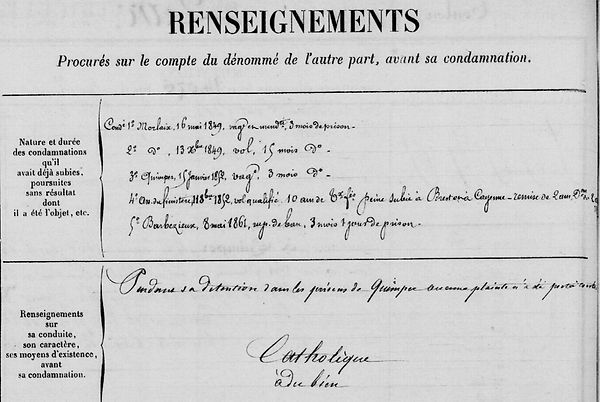 RENSEIGNEMENTS
Procurés sur le compte du dénommé de l'autre part, avant sa condamnation.
Nature et durée
des condamnations
qu'il
avait déjà subies,
poursuites
sans résultat
dont
il a été l'objet, etc.
Condé 1º Morlaix, 16 mai 1849, vagt et mendté, 3 mois de prison -
2º dº, 13 Xbre 1849, vol, 15 mois dº -
3º Quimper, 15 janvier 1852, vagt, 3 mois dº -
4º As. du finistère, 1852, vol qualifié, 10 ans de Tx fés, peine subie à Brest et à Cayenne - remise de 2 ans,
5º Barbezieux, 8 mai 1861, rup. de ban, 3 mois 1 jour de prison.
Renseignements
sur
sa conduite,
son caractère,
ses moyens d'existence,
avant
sa condamnation.
Pendant sa détention dans les prisons de Quimper aucune plainte n'a été portée contre
Catholique
a du bien